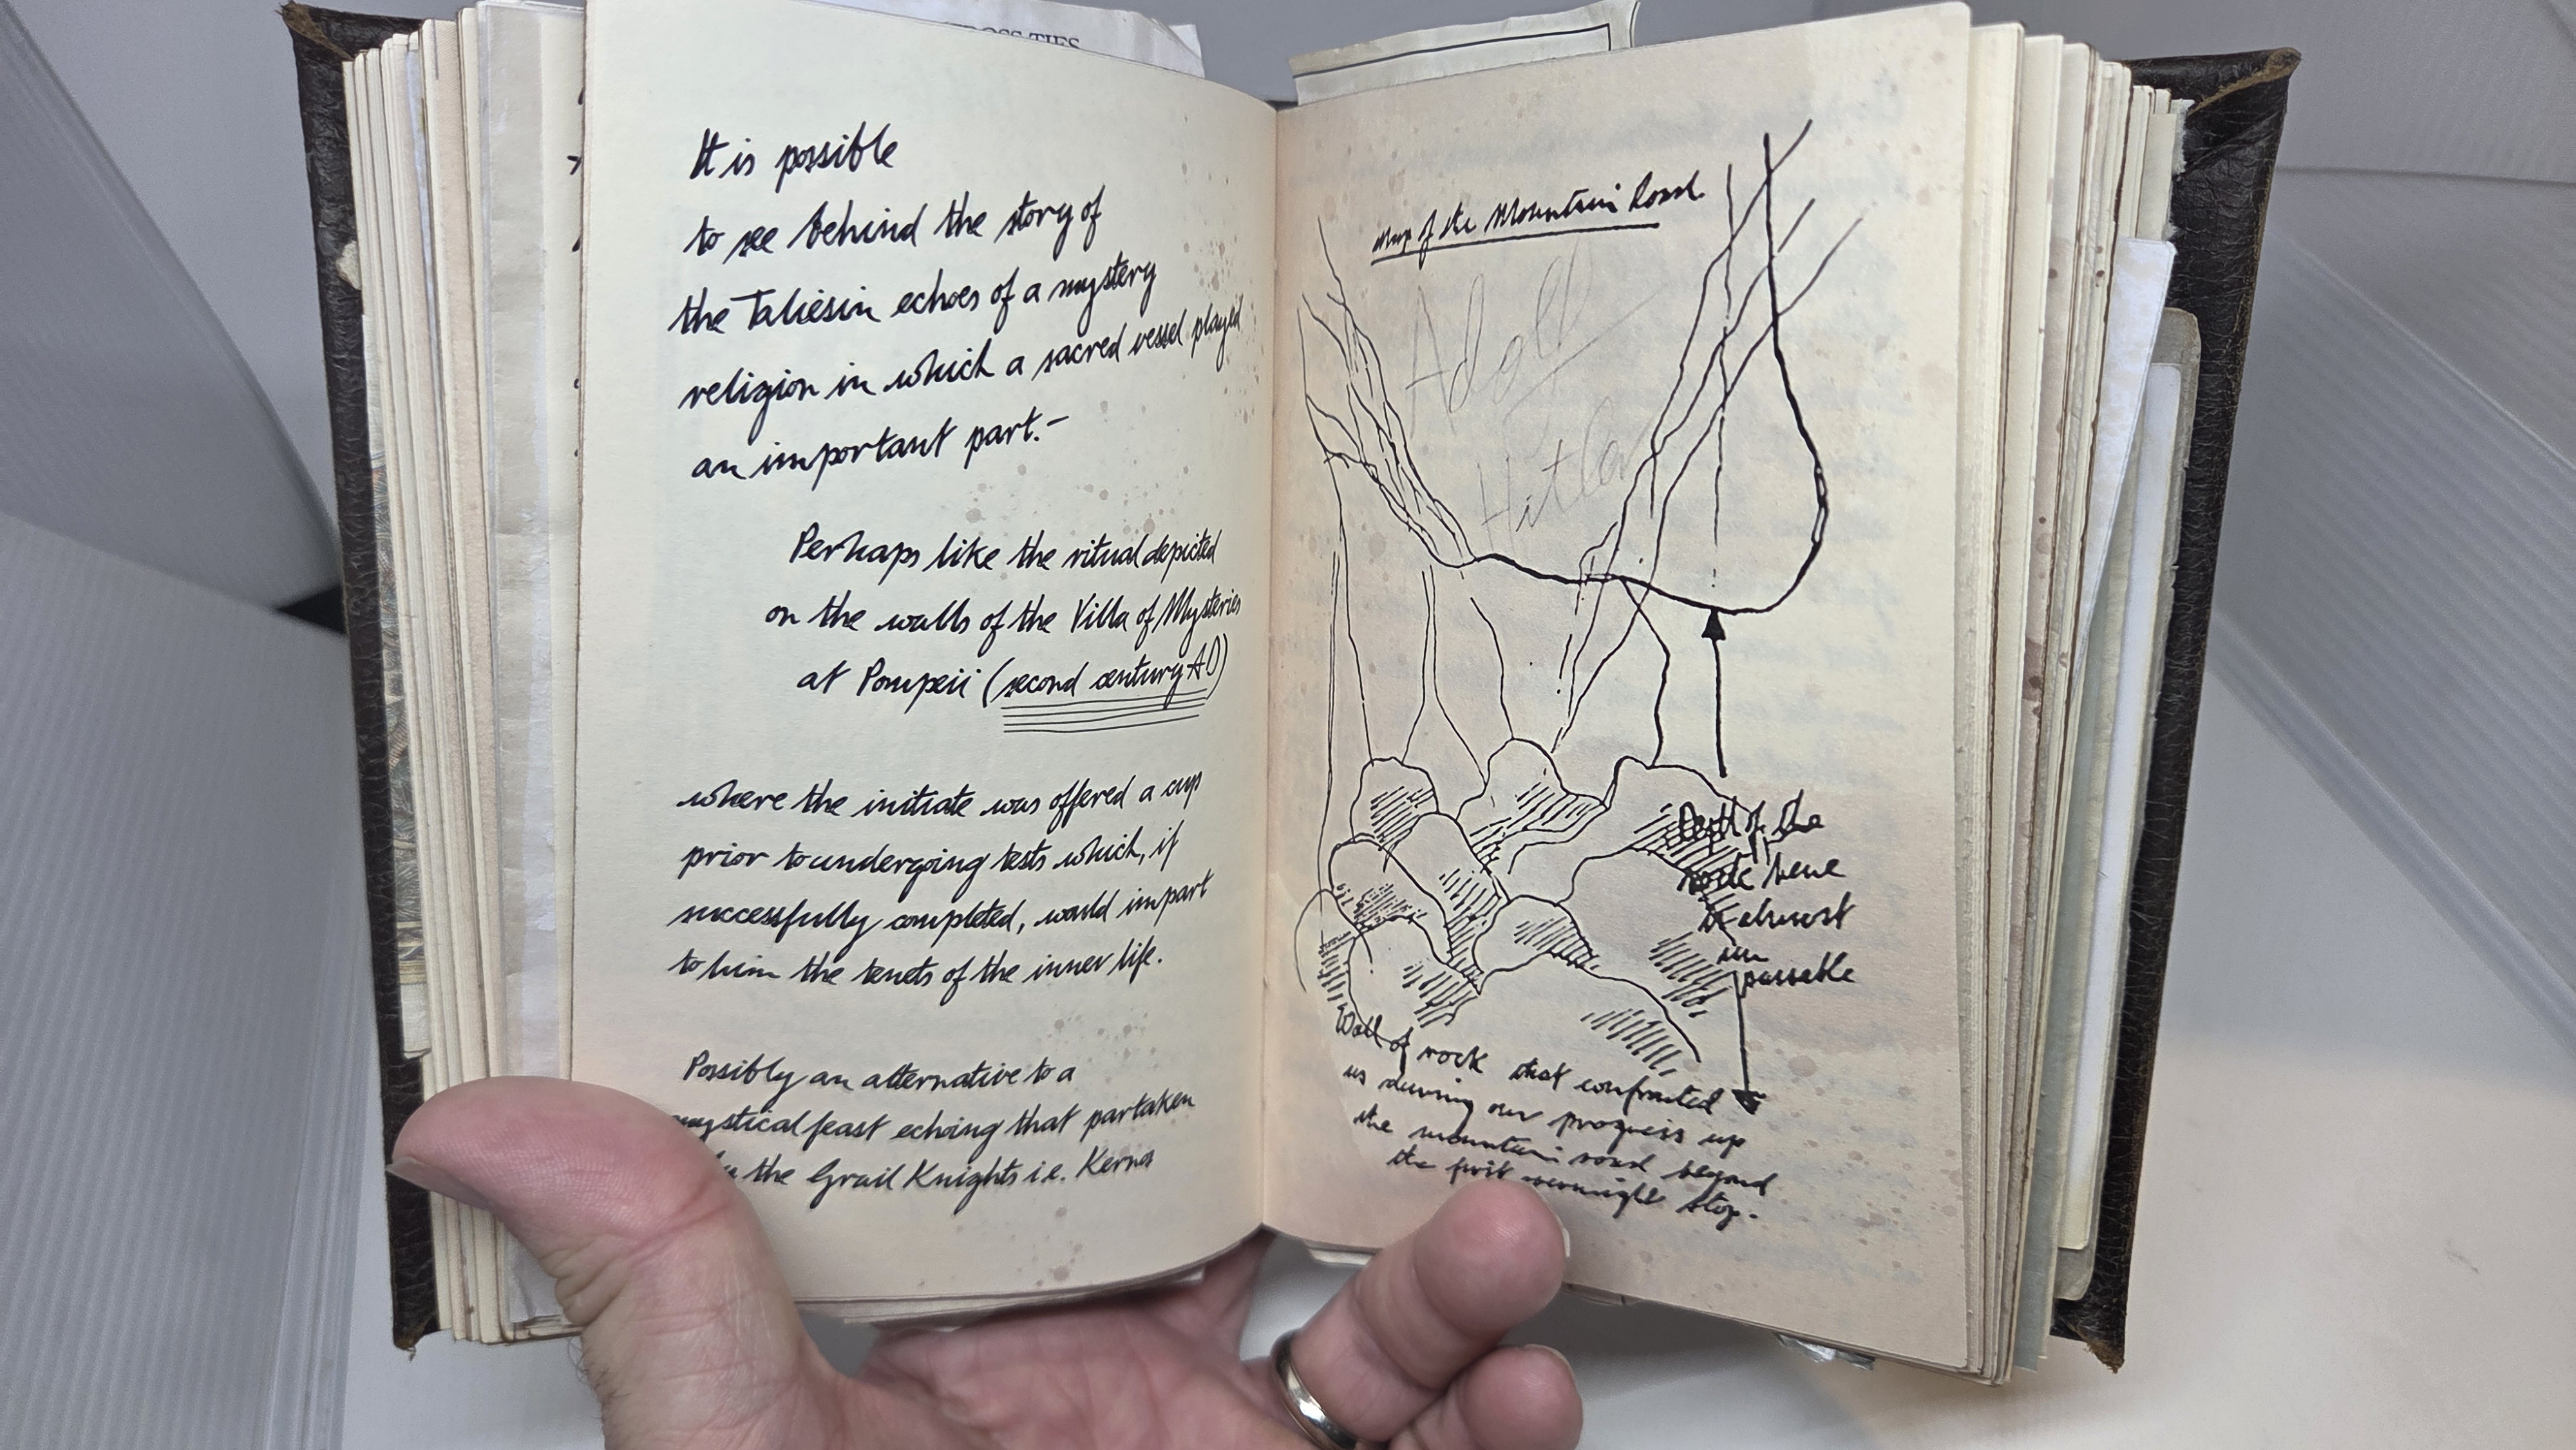 OSS TIES
It is possible
to see behind the story of
the Taliesin echoes of a mystery
religion in which a sacred vessel played
an important part.-
Perhaps like the ritual depicted
on the walls of the Villa of Mysteries
at Pompeii (second century AD)
where the initiate was offered a cup
prior to undergoing tests which, if
successfully completed, would impart
to him the tenets of the inner life.
Possibly an alternative to a
mystical feast echoing that partaken
the Grail Knights i.e.
Map of the Mountain Road
Adolf
Hitler
of the
rock here
is almost
im
passable
Wall of rock that confronted
us during our progress up
the mountain road beyond
the first overnight stop.